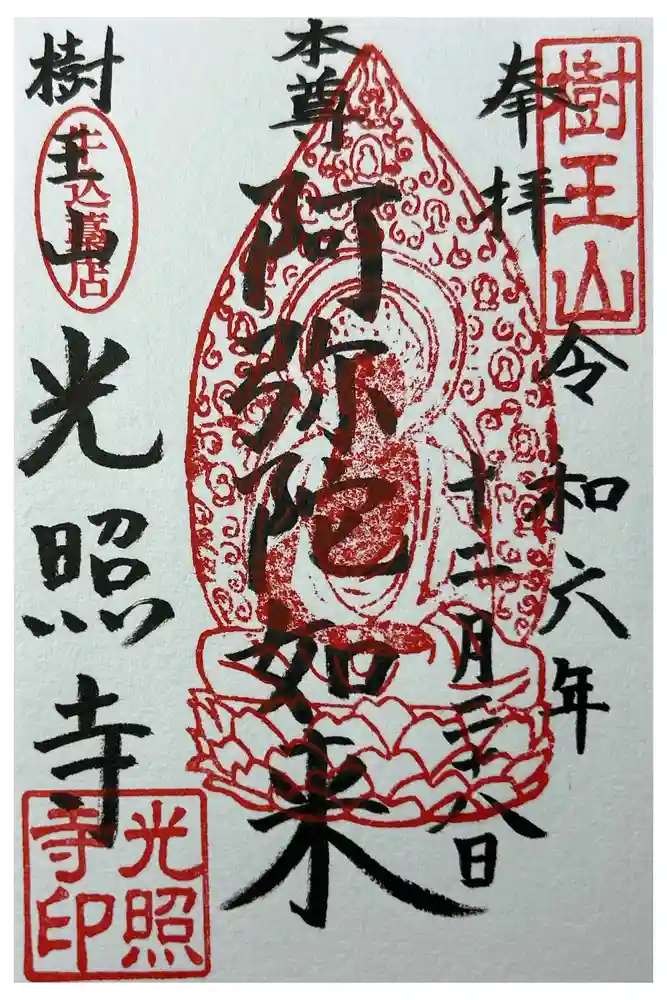 奉拝
樹王山
令和六年
十二月二十八日
本尊
阿弥陀如来
樹王山
光照寺
光照寺印